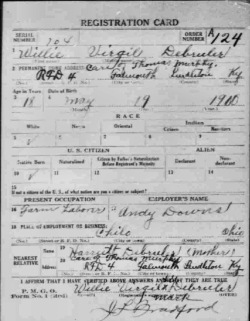 REGISTRATION CARD
SERIAL NUMBER 704 ORDER NUMBER A 124
Willie Virgil Debruler
PERMANENT HOME ADDRESS Care of Thomas Murphy
RFD 4 Falmouth Pendleton Ky
Age in Years Date of Birth
18 May 19 1900
RACE
White Negro Oriental Indian
Citizen Noncitizen
U. S. CITIZEN ALIEN
Native Born Naturalized Citizen by Father's Naturalization Before Registrant's Majority Declarant Non-declarant
If not a citizen of the U. S., of what nation are you a citizen or subject?
PRESENT OCCUPATION EMPLOYER'S NAME
Farm Laborer Andy Downs
PLACE OF EMPLOYMENT OR BUSINESS:
Philo Ohio
NEAREST RELATIVE Name Debruler (Mother)
Address Care of Thomas Murphy
RFD 4 Falmouth Pendleton Ky
I AFFIRM THAT I HAVE VERIFIED ABOVE ANSWERS AND THAT THEY ARE TRUE
P. M. G. O.
Form No. 1 Willie Virgil Debruler
mark